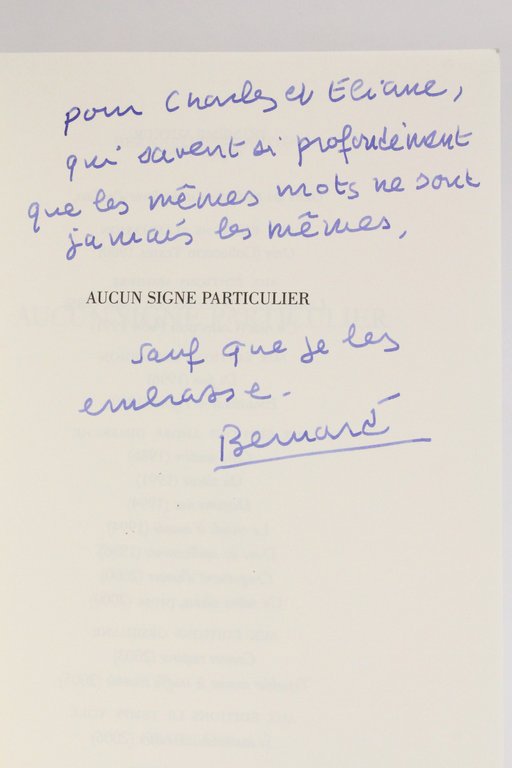 pour Charles et Eliane,
qui savent si profondément
que les mêmes mots ne sont
jamais les mêmes,
AUCUN SIGNE PARTICULIER
sauf que je les
embrasse.
Bernard